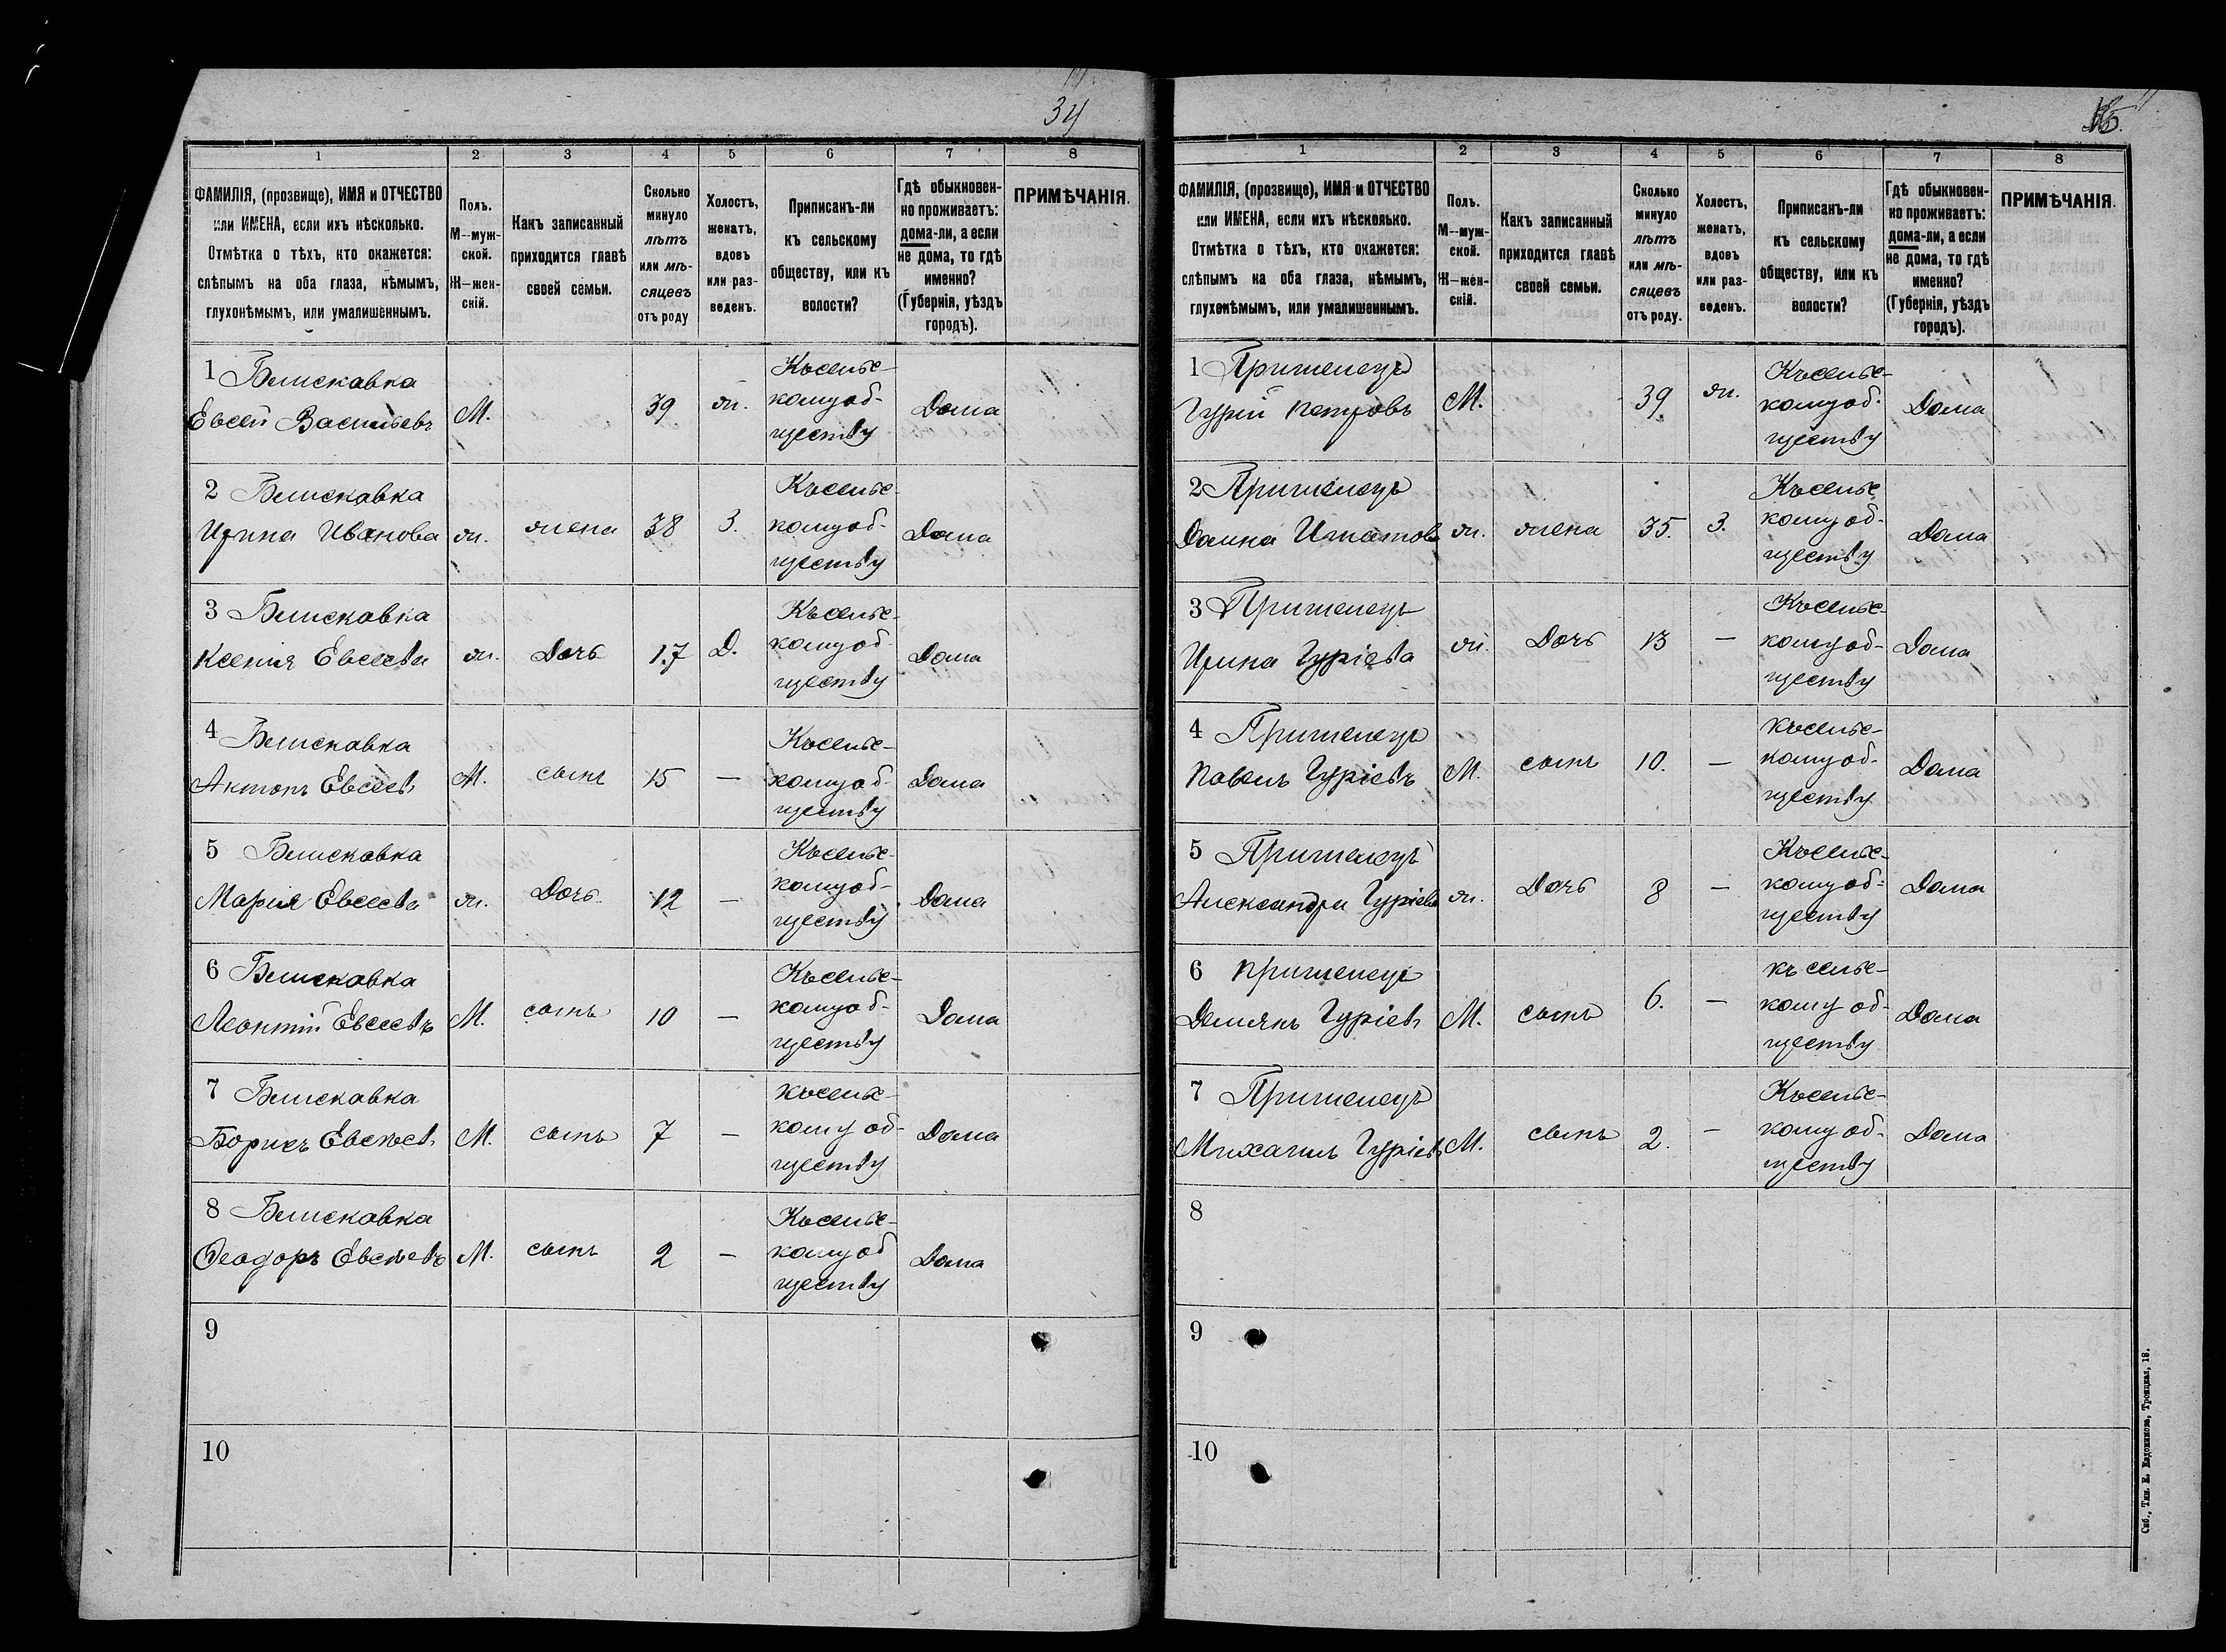 34
1 2 3 4 5 6 7 8
ФАМИЛІЯ, (прозвище), ИМЯ и ОТЧЕСТВО
или ИМЕНА, если ихъ нѣсколько.
Отмѣтка о тѣхъ, кто окажется:
слѣпымъ на оба глаза, нѣмымъ,
глухонѣмымъ, или умалишеннымъ.
Полъ.
М—муж-
ской.
Ж—жен-
скій.
Какъ записанный
приходится главѣ
своей семьи.
Сколько
минуло
лѣтъ
или мѣ-
сяцевъ
отъ роду
Холостъ,
женатъ,
вдовъ
или раз-
веденъ.
Приписанъ-ли
къ сельскому
обществу, или къ
волости?
Гдѣ обыкновен-
но проживаетъ:
дома-ли, а если
не дома, то гдѣ
именно?
(Губернія, уѣздъ
городъ).
ПРИМѢЧАНІЯ.
1
Евсей Васильевъ М. 39 ж. Къ сельс-
кому об-
ществу Дома
2
Ирина Иванова ж. жена 38 З. Къ сельс-
кому об-
ществу Дома
3
Ксенія Евсеева ж. Дочь 17 Д. Къ сельс-
кому об-
ществу Дома
4
Антонъ Евсеевъ М. сынъ 15 — Къ сельс-
кому об-
ществу Дома
5
Марія Евсеева ж. Дочь 12 — Къ сельс-
кому об-
ществу Дома
6
Леонтій Евсеевъ М. сынъ 10 — Къ сельс-
кому об-
ществу Дома
7
Борисъ Евсѣевъ М. сынъ 7 — Къ сельс-
кому об-
ществу Дома
8
Феодоръ Евсѣевъ М. сынъ 2 — Къ сельс-
кому об
ществу Дома
9
10
1 2 3 4 5 6 7 8
ФАМИЛІЯ, (прозвище), ИМЯ и ОТЧЕСТВО
или ИМЕНА, если ихъ нѣсколько.
Отмѣтка о тѣхъ, кто окажется:
слѣпымъ на оба глаза, нѣмымъ,
глухонѣмымъ, или умалишеннымъ.
Полъ.
М—муж-
ской.
Ж—жен-
скій.
Какъ записанный
приходится главѣ
своей семьи.
Сколько
минуло
лѣтъ
или мѣ-
сяцевъ
отъ роду.
Холостъ,
женатъ,
вдовъ
или раз-
веденъ.
Приписанъ-ли
къ сельскому
обществу, или къ
волости?
Гдѣ обыкновен-
но проживаетъ:
дома-ли, а если
не дома, то гдѣ
именно?
(Губернія, уѣздъ
городъ).
ПРИМѢЧАНІЯ.
1 Пришелецъ
Гурій Петровъ М. 39 ж. Къ сельс-
кому об-
ществу Дома
2 Пришелецъ
Домна ж. жена 35. З. Къ сельс
кому об-
ществу Дома
3 Пришелецъ
Ирина Гуріева ж. Дочь 13 — Къ сельс-
кому об-
ществу Дома
4 Пришелецъ
Павелъ Гуріевъ М. сынъ 10. — Къ сельс-
кому об-
ществу Дома
5 Пришелецъ
Александра Гуріева ж. Дочь 8 — Къ сельс-
кому об-
ществу Дома
6 Пришелецъ
Демянъ Гуріевъ М. сынъ 6. — Къ сельс-
кому об-
ществу Дома
7 Пришелецъ
Михаилъ Гуріевъ М. сынъ 2. — Къ сельс-
кому об-
ществу Дома
8
9
10
Спб., Тип. Е. Евдокимова, Троицкая, 18.